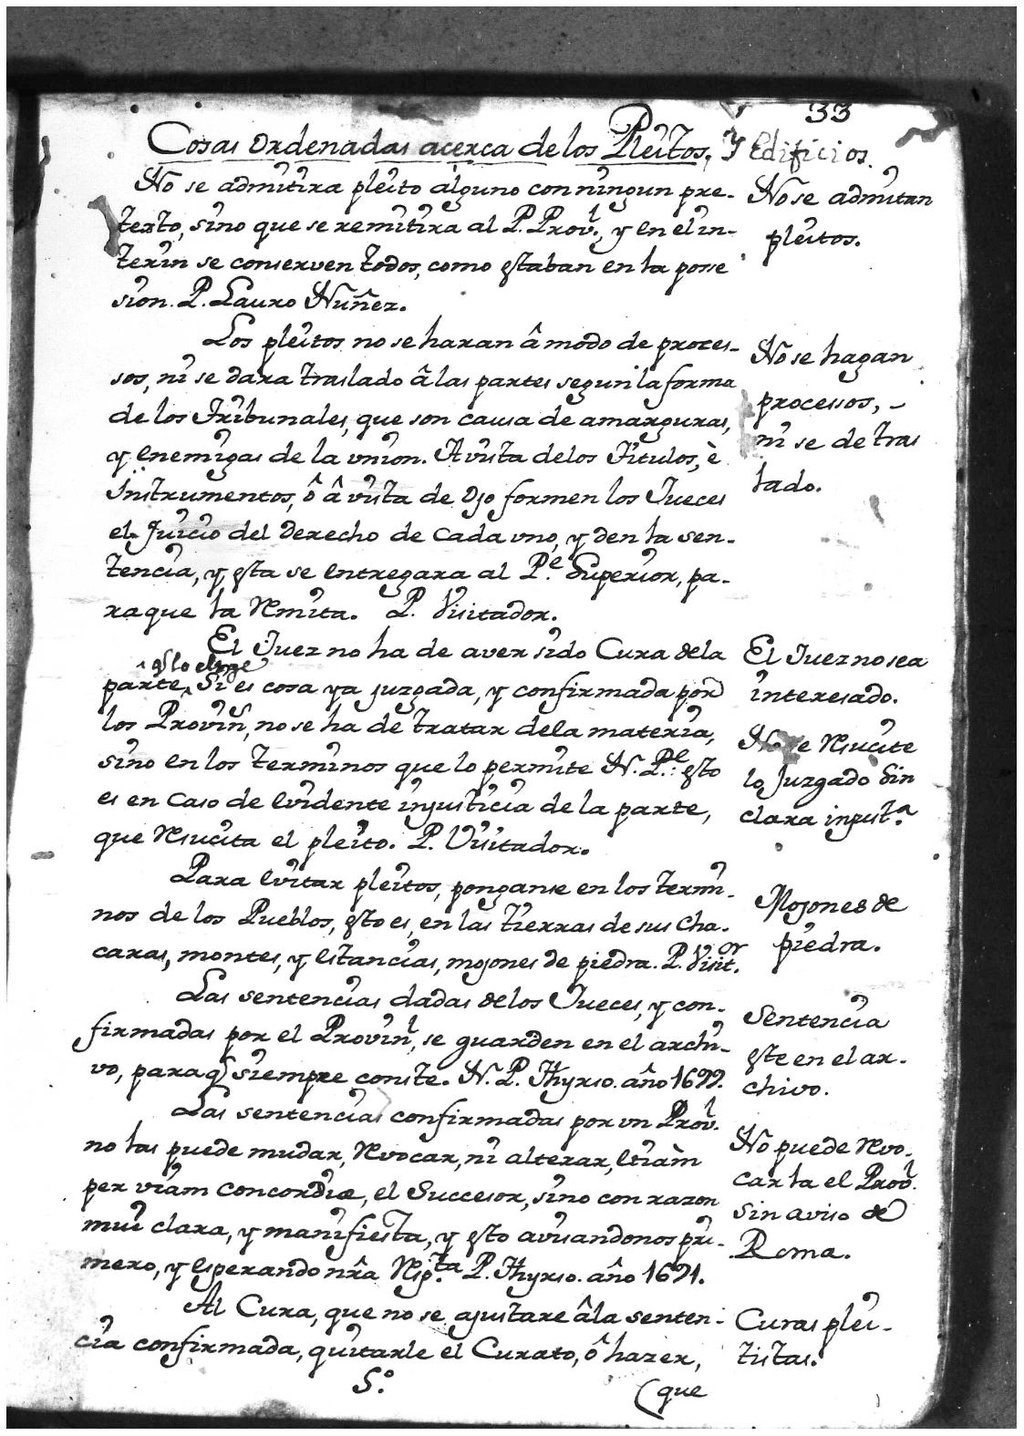 33
Cosas Ordenadas acerca de los Pleitos, Y Edificios.
No se admitira pleito alguno con ningun pre-
texto, sino que se remitira al P. Prov.l, y en el in-
terin se conserven todos, como estaban en la posse
sion. P. Lauro Nuñez.
No se admitan
pleitos.
Los pleitos no se haran â modo de proces-
sos, ni se dara traslado â las partes segun la forma
de los Tribunales, que son causa de amarguras,
y enemigas de la union. A vista de los Titulos, è
Instrumentos, ô â vista de ojo formen los Jueces
el Juicio del derecho de cada uno, y den la sen-
tencia, y esta se entregara al P.e Superior, pa-
raque la Remita. P. Visitador.
No se hagan
processos, -
ni se de tras
lado.
El Juez no ha de aver sido Cura de la
parte, Si es cosa ya juzgada, y confirmada por
los Provin.s, no se ha de tratar de la materia,
sino en los terminos que lo permite N. P.e: esto
es en caso de evidente injusticia de la parte,
que Resucita el pleito. P. Visitador.
El Juez no sea
interesado.
No se Resucite
lo Juzgado Sin
clara injust.a
Para evitar pleitos, ponganse en los termi-
nos de los Pueblos, esto es, en las tierras de sus cha-
caras, montes, y estancias, mojones de piedra. P. Visit.or
Mojones de
piedra.
Las sentencias dadas de los Jueces, y con-
firmadas por el Provin.l, se guarden en el archi-
vo, para q̃ siempre conste. N. P. Thyrso. año 1699.
Sentencia
este en el ar-
chivo.
Las sentencias confirmadas por un Prov.l
no las puede mudar, Revocar, ni alterar, etiàm
per viam concordiæ, el Successor, sino con razon
mui clara, y manifiesta, y esto avisandonos pri-
mero, y esperando nr̃a Resp.ta P. Thyrso. año 1691.
No puede Revo-
carla el Prov.l
sin aviso de
Roma.
Al Cura, que no se ajustare âla senten-
cia confirmada, quitarle el Curato, ô hazer,
Curas plei-
tistas.
S.o
(que